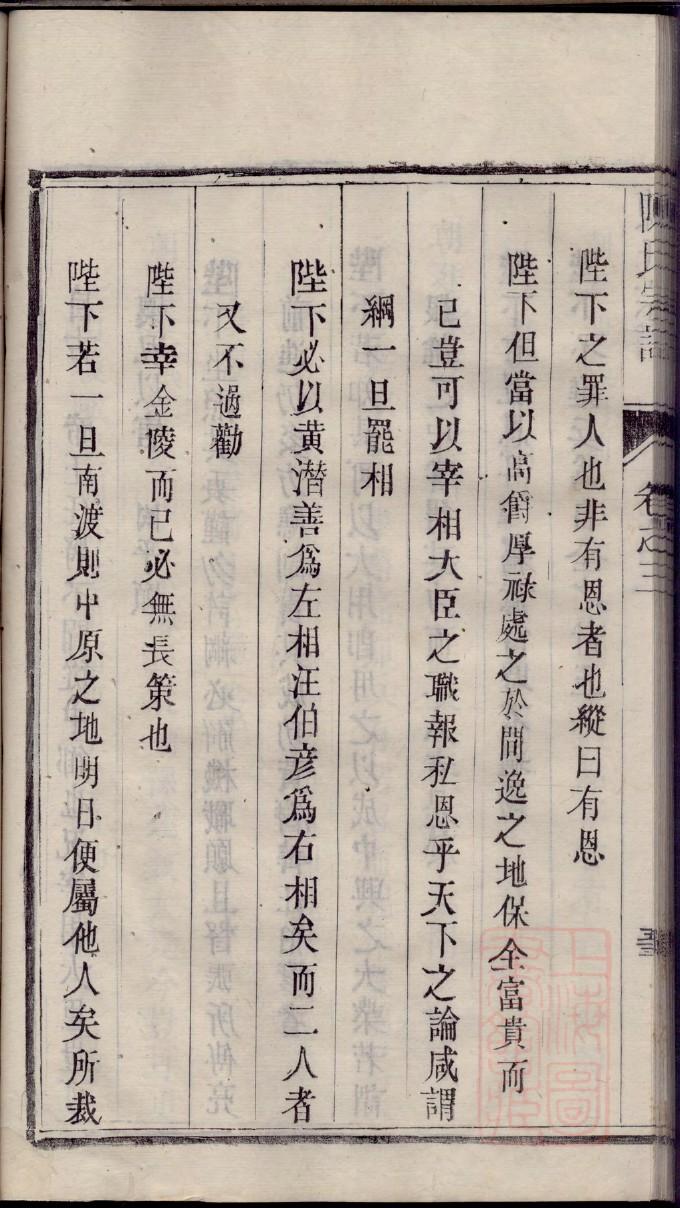 陛下之罪人也非有恩者也縱曰有恩
陛下但當以高爵厚祿處之於間逸之地保全富貴而
已豈可以宰相大臣之職報私恩乎天下之論咸謂
綱一旦罷相
陛下必以黄潛善爲左相汪伯彦爲右相矣而二人者
又不過勸
陛下幸金陵而已必無長策也
陛下若一旦南渡則中原之地明日便屬他人矣所裁
卷之三